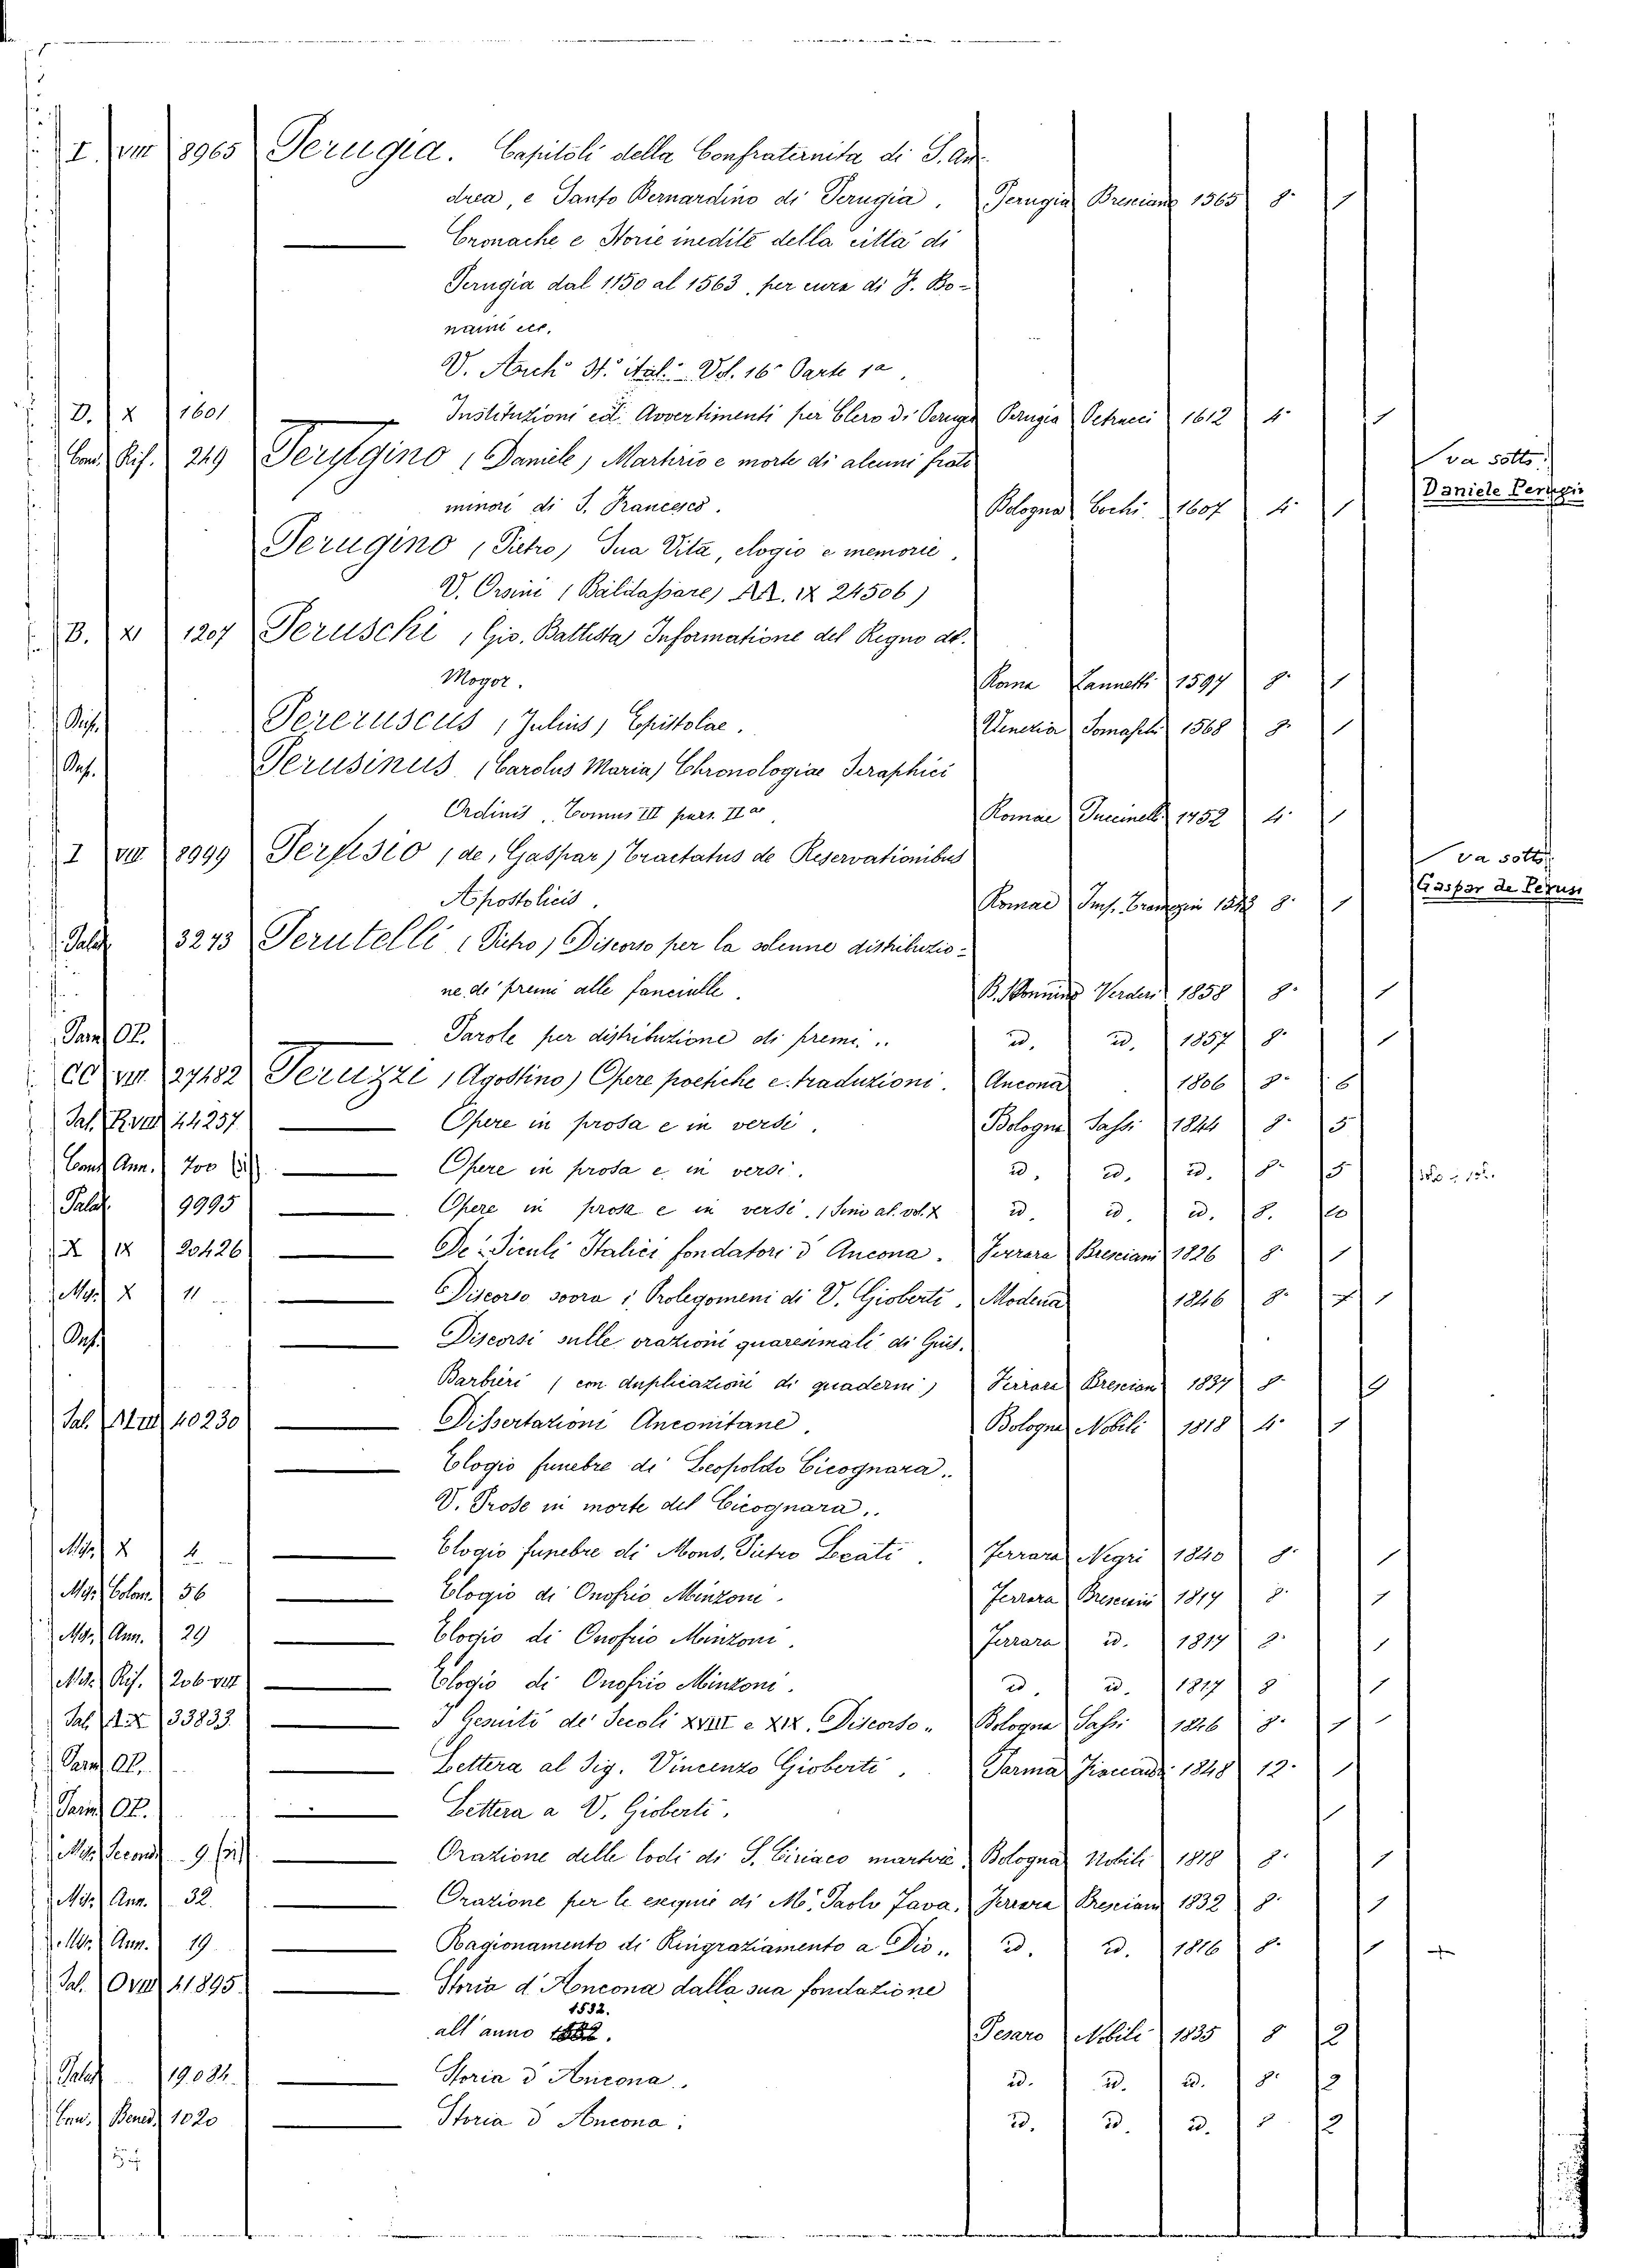 I. VIII 8965 Perugia. Capitoli della Confraternita di S. An-
drea, e Santo Bernardino di Perugia. Perugia Bresciano 1565 8° 1
Cronache e Storie inedite della città di
Perugia dal 1150 al 1563, per cura di F. Bo-
naini ecc.
V. Arch° St° ital.° Vol. 16° Parte 1a.
D. X 1601 Instituzioni ed Avvertimenti per Clero di Perugia Perugia Petrucci 1612 4° 1
Conv. Rif. 249 Perugino (Daniele) Martirio e morte di alcuni frati
va sotto
minori di S. Francesco. Bologna Cochi 1607 4° 1
Daniele Perugin
Perugino (Pietro) Sua Vita, elogio e memorie.
V. Orsini (Baldassare) AA. IX 24506)
B. XI 1207 Peruschi (Gio. Battista) Informatione del Regno del
Mogor. Roma Zannetti 1597 8° 1
Rif. Pereruscus (Julius) Epistolae. Venezia 1568 8° 1
Perusinus (Carolus Maria) Chronologiae Seraphici
Ordinis, Tomus III pars IIa. Romae 1752 4° 1
I VIII 8999 Perusio (de, Gaspar) Tractatus de Reservationibus
va sotto
Apostolicis. Romae 8° 1
Gaspar de Perusi
Palat. 3243 Perutelli (Pietro) Discorso per la solenne distribuzio-
ne di premi alle fanciulle. B. Verderi 1858 8° 1
Parm. OP. Parole per distribuzione di premi. id. id. 1857 8° 1
CC VIII 27482 Peruzzi (Agostino) Opere poetiche e traduzioni. Ancona 1806 8° 6
Sal. 44257 Opere in prosa e in versi. Bologna Sassi 1844 8° 5
Conv. Ann. 700 (bis) Opere in prosa e in versi. id. id. id. 8° 5
Palat. 9995 Opere in prosa e in versi. (Sino al vol. X id. id. id. 8. 10
X IX 20426 De' Siculi Italici fondatori d'Ancona. Ferrara Bresciani 1826 8° 1
Misc. X 11 Discorso sovra i Prolegomeni di V. Gioberti. Modena 1846 8° 1
Discorsi sulle orazioni quaresimali di Gius.
Barbieri (con duplicazioni di quaderni) Ferrara Bresciani 1837 8°
Sal. 40230 Dissertazioni Anconitane. Bologna Nobili 1818 4° 1
Elogio funebre di Leopoldo Cicognara.
V. Prose in morte del Cicognara.
Misc. X 4 Elogio funebre di Mons. Pietro Ferrara Negri 1840 8° 1
Misc. Colom. 56 Elogio di Onofrio Minzoni. Ferrara Bresciani 1817 8° 1
Misc. Ann. 29 Elogio di Onofrio Minzoni. Ferrara id. 1817 8° 1
Misc. Rif. 206 VIII Elogio di Onofrio Minzoni. id. id. 1817 8 1
Sal. 33833 I Gesuiti de' Secoli XVIII e XIX. Discorso. Bologna Sassi 1846 8° 1
Parm. OP. Lettera al Sig. Vincenzo Gioberti. Parma Fiaccadori 1848 12° 1
Parm. OP. Lettera a V. Gioberti. 1
Misc. Second. 9 (bis) Orazione delle lodi di S. Ciriaco martire. Bologna Nobili 1818 8° 1
Misc. Ann. 32. Orazione per le esequie di M.r Paolo Fava. Ferrara Bresciani 1832 8° 1
Misc. Ann. 19 Ragionamento di Ringraziamento a Dio. id. id. 1816 8° 1
Sal. O VIII 41895 Storia d'Ancona dalla sua fondazione
1532.
all'anno Pesaro Nobili 1835 8 2
Palat. 19.084 Storia d'Ancona. id. id. id. 8° 2
Conv. Bened. 1020 Storia d'Ancona. id. id. id. 8 2